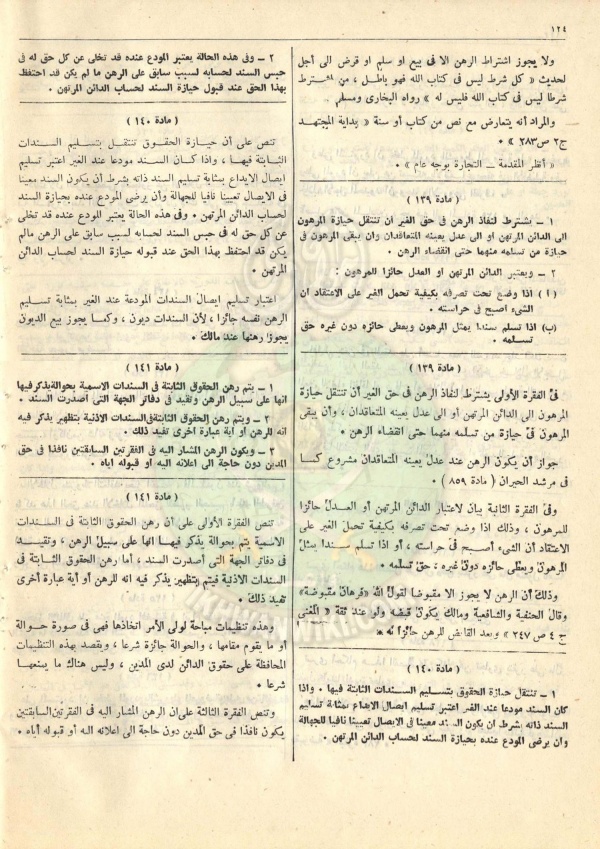 ١٢٤
ولا يجوز اشتراط الرهن الا في بيع او سلم او قرض الى أجل
لحديث « كل شرط ليس في كتاب الله فهو باطل ، من اشترط
شرطا ليس في كتاب الله فليس له » رواه البخارى ومسلم ٠
والمراد أنه يتعارض مع نص من كتاب أو سنة « بداية المجتهد
ج٢ ص٢٨٣ » ٠
« أنظر المقدمة ــ التجارة بوجه عام » ٠
( مادة ١٣٩ )
١ ــ يشترط لنفاذ الرهن فى حق الغير ان تنتقل حيازة المرهون
الى الدائن المرتهن او الى عدل يعينه المتعاقدان وان يبقى المرهون فى
حيازة من تسلمه منهما حتى انقضاء الرهن ٠
٢ ــ ويعتبر الدائن المرتهن أو العدل حائزا للمرهون :
( أ ) اذا وضع تحت تصرفه بكيفية تحمل الغير على الاعتقاد ان
الشىء اصبح فى حراسته ٠
(ب) اذا تسلم سندا يمثل المرهون ويعطى حائزه دون غيره حق
تسلمه ٠
( مادة ١٣٩ )
فى الفقرة الأولى يشترط لنفاذ الرهن فى حق الغير أن تنتقل حيازة
المرهون الى الدائن المرتهن أو الى عدل يعينه المتعاقدان ، وأن يبقى
المرهون فى حيازة من تسلمه منهما حتى انقضاء الرهن ٠
جواز أن يكون الرهن عند عدل يعينه المتعاقدان مشروع كما
فى مرشد الحيران ( مادة ٨٥٩ ) ٠
وفى الفقرة الثانية بيان لاعتبار الدائن المرتهن أو العدل حائزا
للمرهون ، وذلك اذا وضع تحت تصرفه بكيفية تحمل الغير على
الاعتقاد أن الشىء أصبح فى حراسته ، أو اذا تسلم سندا يمثل
المرهون ويعطى حائزه دون غيره : حق تسلمه ٠
وذلك أن الرهن لا يجوز الا مقبوضا لقول الله «فرهان مقبوضة»
وقال الحنفية والشافعية ومالك يكون قبضه ولو عند ثقة « المغنى
ج ٤ ص ٢٤٧ » وبعد القابض للرهن حائزا له ٠
( مادة ١٤٠ )
١ ــ تنتقل حيازة الحقوق بتسليم السندات الثابتة فيها ٠ واذا
كان السند مودعا عند الغير اعتبر تسليم ايصال الايداع بمثابة تسليم
السند ذاته بشرط ان يكون السند معينا فى الايصال تعيينا نافيا للجهالة
وان يرضى المودع عنده بحيازة السند لحساب الدائن المرتهن ٠
٢ ــ وفى هذه الحالة يعتبر المودع عنده قد تخلى عن كل حق له فى
حبس السند لحسابه لسبب سابق على الرهن ما لم يكن قد احتفظ
بهذا الحق عند قبول حيازة السند لحساب الدائن المرتهن ٠
( مادة ١٤٠ )
تنص على أن حيازة الحقوق تنتقل بتسليم السندات
الثابتة فيها ، واذا كان السند مودعا عند الغير اعتبر تسليم
ايصال الايداع بمثابة تسليم السند ذاته بشرط أن يكون السند معينا
فى الايصال تعيينا نافيا للجهالة وأن يرضى المودع عنده بحيازة السند
لحساب الدائن المرتهن ٠ وفى هذه الحالة يعتبر المودع عنده قد تخلى
عن كل حق له فى حبس السند لحسابه لسبب سابق على الرهن مالم
يكن قد احتفظ بهذا الحق عند قبوله حيازة السند لحساب الدائن
المرتهن ٠
اعتبار تسليم ايصال السندات المودعة عند الغير بمثابة تسليم
الرهن نفسه جائزا ، لأن السندات ديون ، وكما يجوز بيع الديون
يجوز رهنها عند مالك ٠
( مادة ١٤١ )
١ ــ يتم رهن الحقوق الثابتة فى السندات الاسمية بحوالة يذكر فيها
انها على سبيل الرهن وتقيد فى دفاتر الجهة التى أصدرت السند ٠
٢ ــ ويتم رهن الحقوق الثابتة فى السندات الاذنية بتظهير يذكر فيه
انه للرهن او اية عبارة اخرى تفيد ذلك ٠
٣ ــ ويكون الرهن المشار اليه فى الفقرتين السابقتين نافذا فى حق
المدين دون حاجة الى اعلانه اليه او قبوله اياه ٠
( مادة ١٤١ )
تنص الفقرة الأولى على أن رهن الحقوق الثابتة فى السندات
الاسمية يتم بحوالة يذكر فيها انها على سبيل الرهن ، وتقيد
فى دفاتر الجهة التى أصدرت السند ، أما رهن الحقوق الثابتة فى
السندات الاذنية فيتم بتظهير يذكر فيه انه للرهن أو أية عبارة أخرى
تفيد ذلك ٠
وهذه تنظيمات مباحة لولى الأمر اتخاذها فهى فى صورة حوالة
أو ما يقوم مقامها ، والحوالة جائزة شرعا ، ويقصد بهذه التنظيمات
المحافظة على حقوق الدائن لدى المدين ، وليس هناك ما يمنعها
شرعا ٠
وتنص الفقرة الثالثة على ان الرهن المشار اليه فى الفقرتين السابقتين
يكون نافذا فى حق المدين دون حاجة الى اعلانه اليه أو قبوله أياه ٠